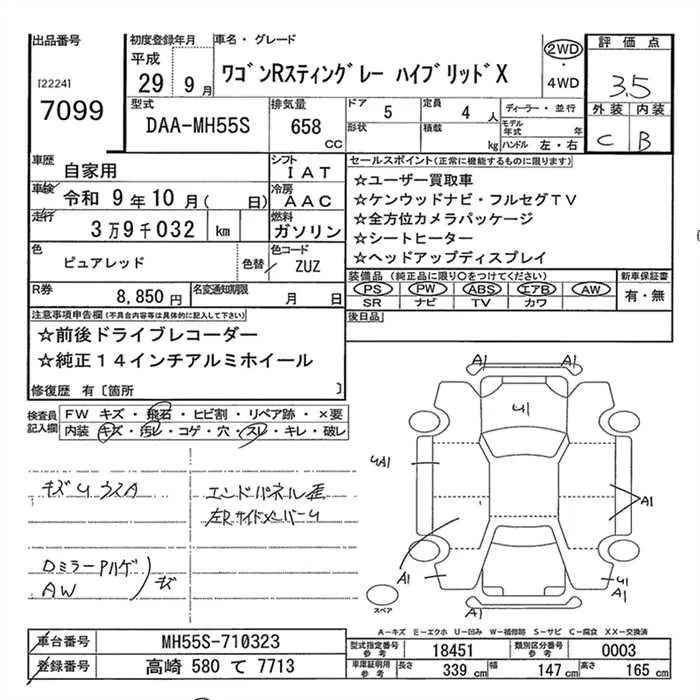 出品番号
[2224]
7099
初度登録年月
平成
29 9月
車名・グレード
ワゴンRスティングレー ハイブリッドX
2WD
・
4WD
評価点
3.5
外装 内装
C B
型式
DAA-MH55S
排気量
658
CC
ドア 5
定員 4人
形状
積載 kg
ディーラー・並行
モデル年式 年
ハンドル 左・右
車歴 自家用
シフト IAT
車検 令和 9年10月( 日)
冷房 AAC
走行 3万9千032 km
燃料 ガソリン
色 ピュアレッド
色替
色コード ZUZ
R券 8,850円
名変通知期限 月 日
セールスポイント(正常に機能するものに限ります)
☆ユーザー買取車
☆ケンウッドナビ・フルセグTV
☆全方位カメラパッケージ
☆シートヒーター
☆ヘッドアップディスプレイ
装備品 (純正品に限り○をつけてください)
PS PW ABS エアB AW
SR ナビ TV カワ
新車保証書
有・無
後日品
注意事項申告欄(不具合内容等は具体的に記入して下さい)
☆前後ドライブレコーダー
☆純正14インチアルミホイール
修復歴 有〔箇所 〕
検査員記入欄
FW キズ・飛石・ヒビ割・リペア跡・×要
内装 キズ・汚レ・コゲ・穴・スレ・キレ・破レ
キズUウスA
エンドパネル歪
左RサイドメンバーU
Dミラー Pリゲ
AW
キズ
A1 A1
U1
UA1
A1
A1
U1
A1
A1
スペア
A-キズ E-エクボ U-凹み W-補修跡 S-サビ C-腐食 XX-交換済
車台番号 MH55S-710323
登録番号 高崎 580 て 7713
型式指定番号 参考 18451
類別区分番号 参考 0003
車庫証明用 参考
長さ 339 cm
幅 147 cm
高さ 165 cm